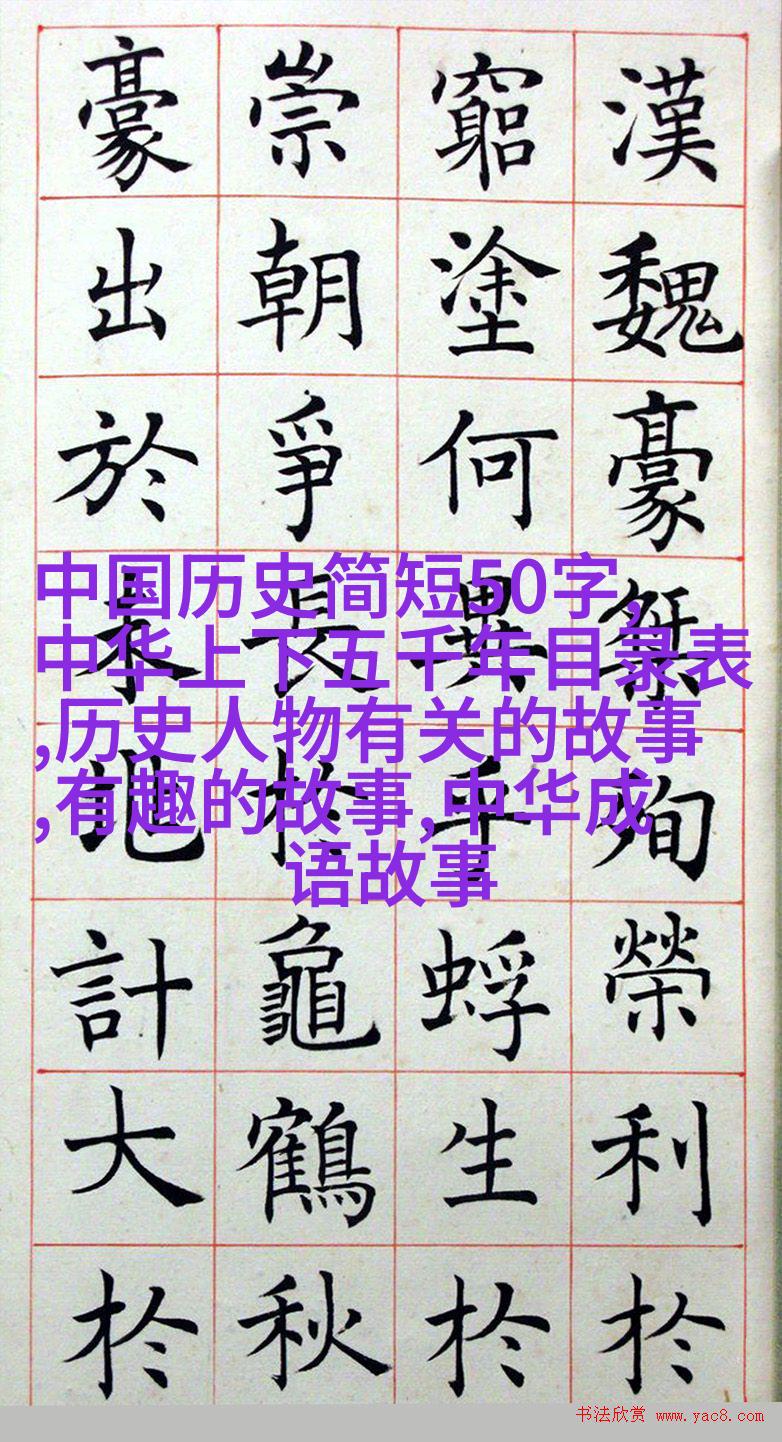 漢魏豪桀殉榮利扵
窮塗何異蜉生扵
崇朝爭長扵龜鶴秋
豪出於計大扵
中国历史简短50字,
中华上下五千年目录表
,历史人物有关的故事
,有趣的故事,中华成
语故事
书法欣赏 www.yac8.com